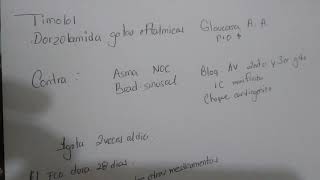 Timolol
Dorzolamida gotas oftalmicas Glaucoma A. A.
Contra: Asma NOC Bloq AV 2do y 3er gdo
Brad sinusal I.C manifiesta
Choque cardiogenico
1gota 2 veces al dia
fco dura 28 dias
otros medicamentos